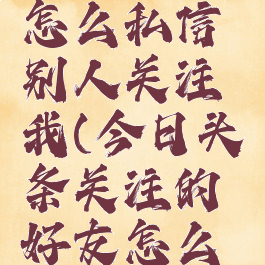 怎么私信
别人关注
我(今日头
条关注的
好友怎么